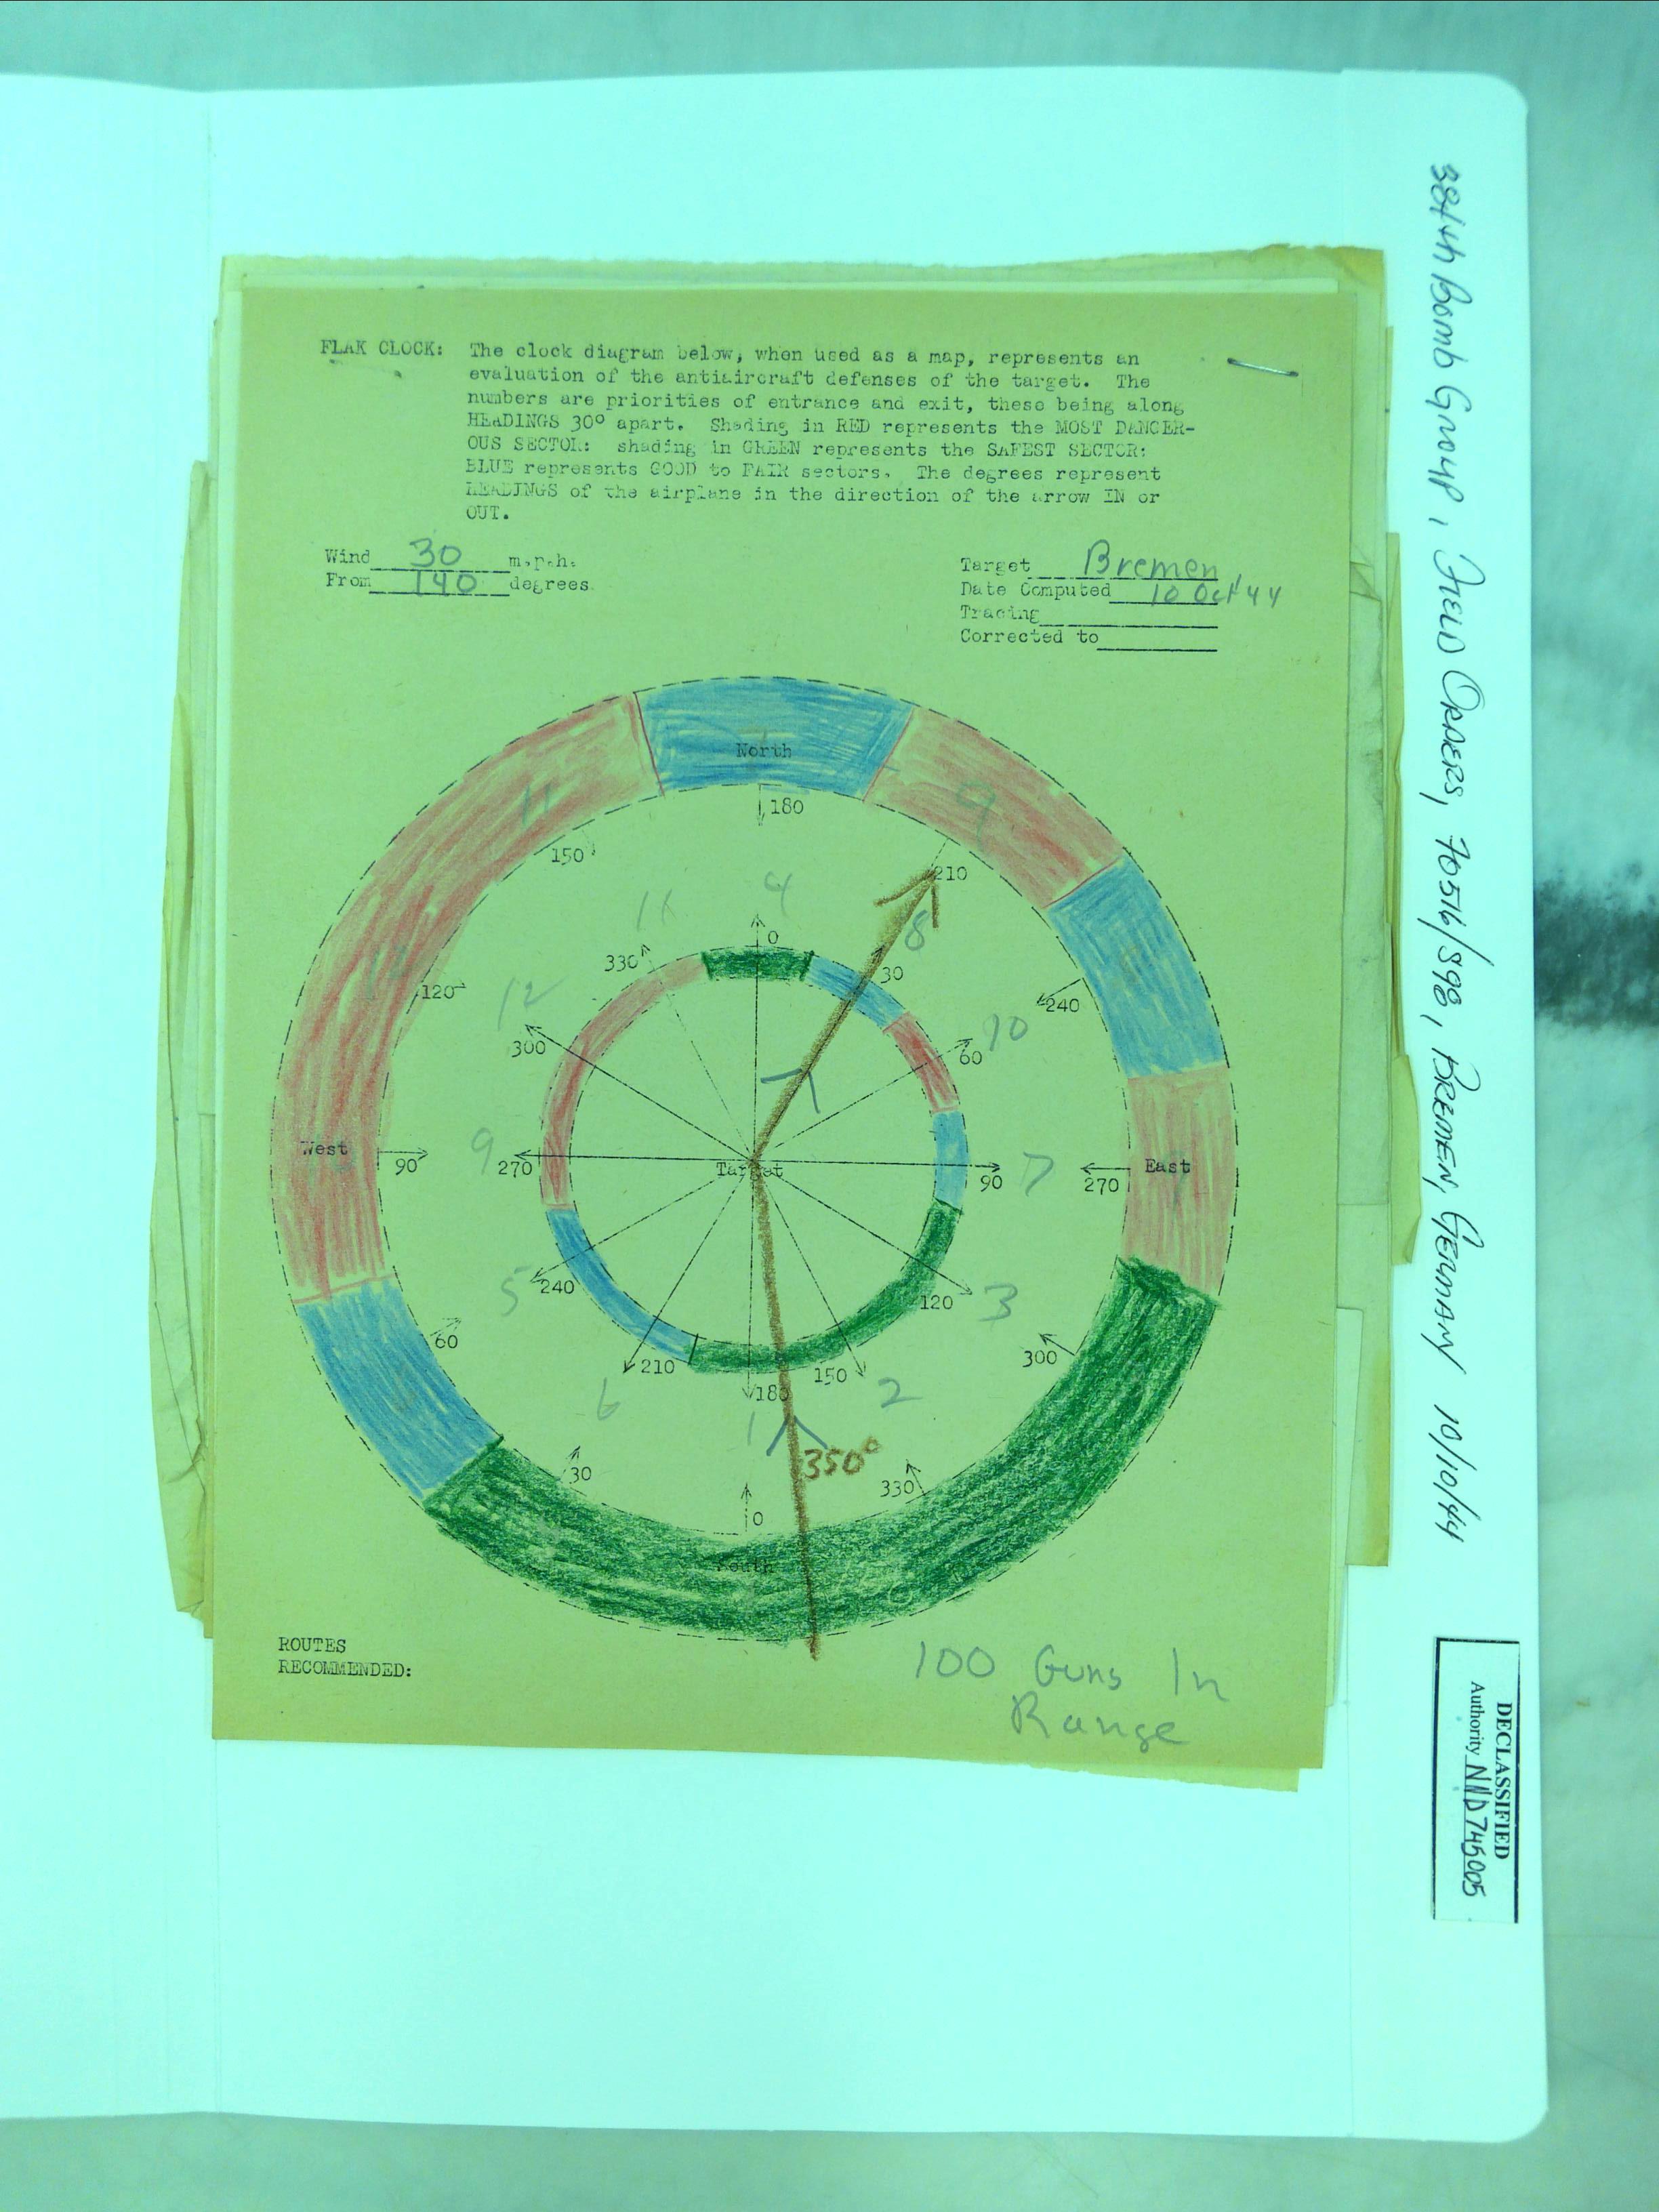 FLAK CLOCK: The clock diagram below, when used as a map, represents an
evaluation of the antiaircraft defenses of the target. The
numbers are priorities of entrance and exit, these being along
HEADINGS 30° apart. Shading in RED represents the MOST DANGER-
OUS SECTOR: shading in GREEN represents the SAFEST SECTOR:
BLUE represents GOOD to FAIR sectors. The degrees represent
HEADINGS of the airplane in the direction of the arrow IN or
OUT.
Wind 30 m.p.h.
From 140 degrees.
Target Bremen
Date Computed 10 Oct 44
Tracing
Corrected to
North
180
9
11
150
210
4
11
0
8
330
30
120
240
12
10
300
60
West
90
9
270
Target
90
7
270
East
60
5
240
120
3
300
210
180
150
6
1
2
350°
30
0
330
South
ROUTES
RECOMMENDED:
100 Guns In
Range
384th Bomb Group, Field Orders, 70516/898, Bremen, German 10/10/44
DECLASSIFIED
Authority NND745005